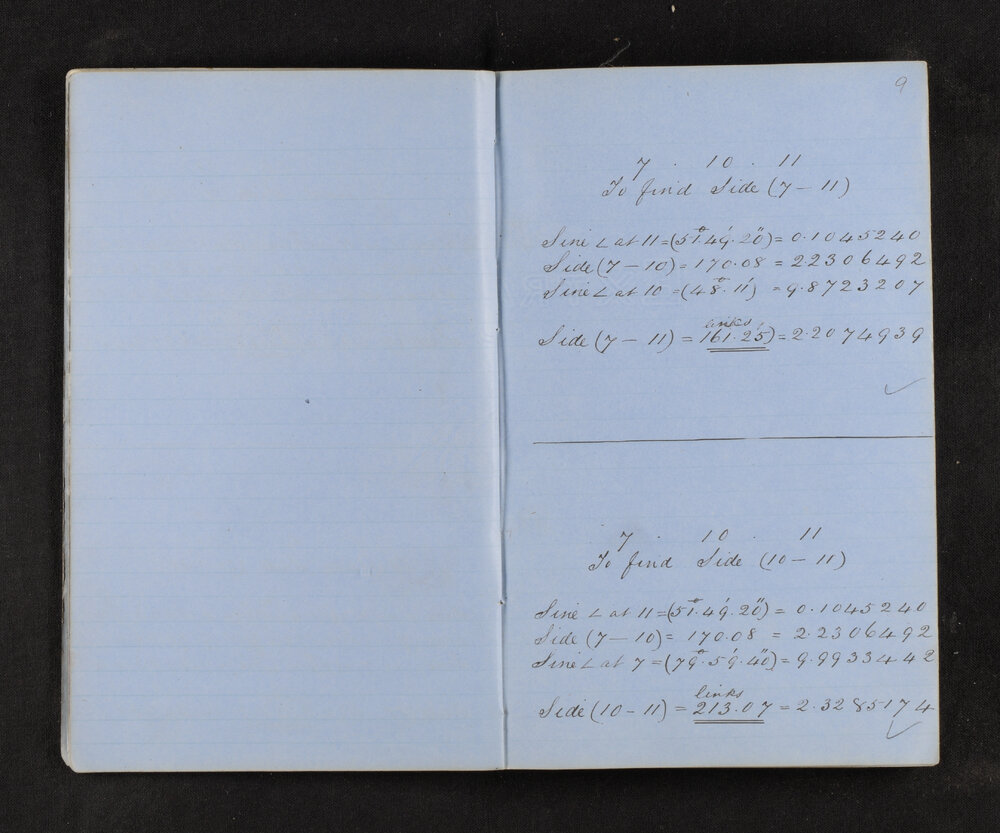 9
7 . 10 . 11
To find Side (7 — 11)
Sine ∠ at 11 = (51°.49'.20") = 0.1045240
Side (7 — 10) = 170.08 = 2.2306492
Sine ∠ at 10 = (48°.11') = 9.8723207
links
Side (7 — 11) = 161.25) = 2.2074939
7 . 10 . 11
To find Side (10 — 11)
Sine ∠ at 11 = (51°.49'.20") = 0.1045240
Side (7 — 10) = 170.08 = 2.2306492
Sine ∠ at 7 = (79°.59'.40") = 9.9933442
links
Side (10 - 11) = 213.07 = 2.3285174